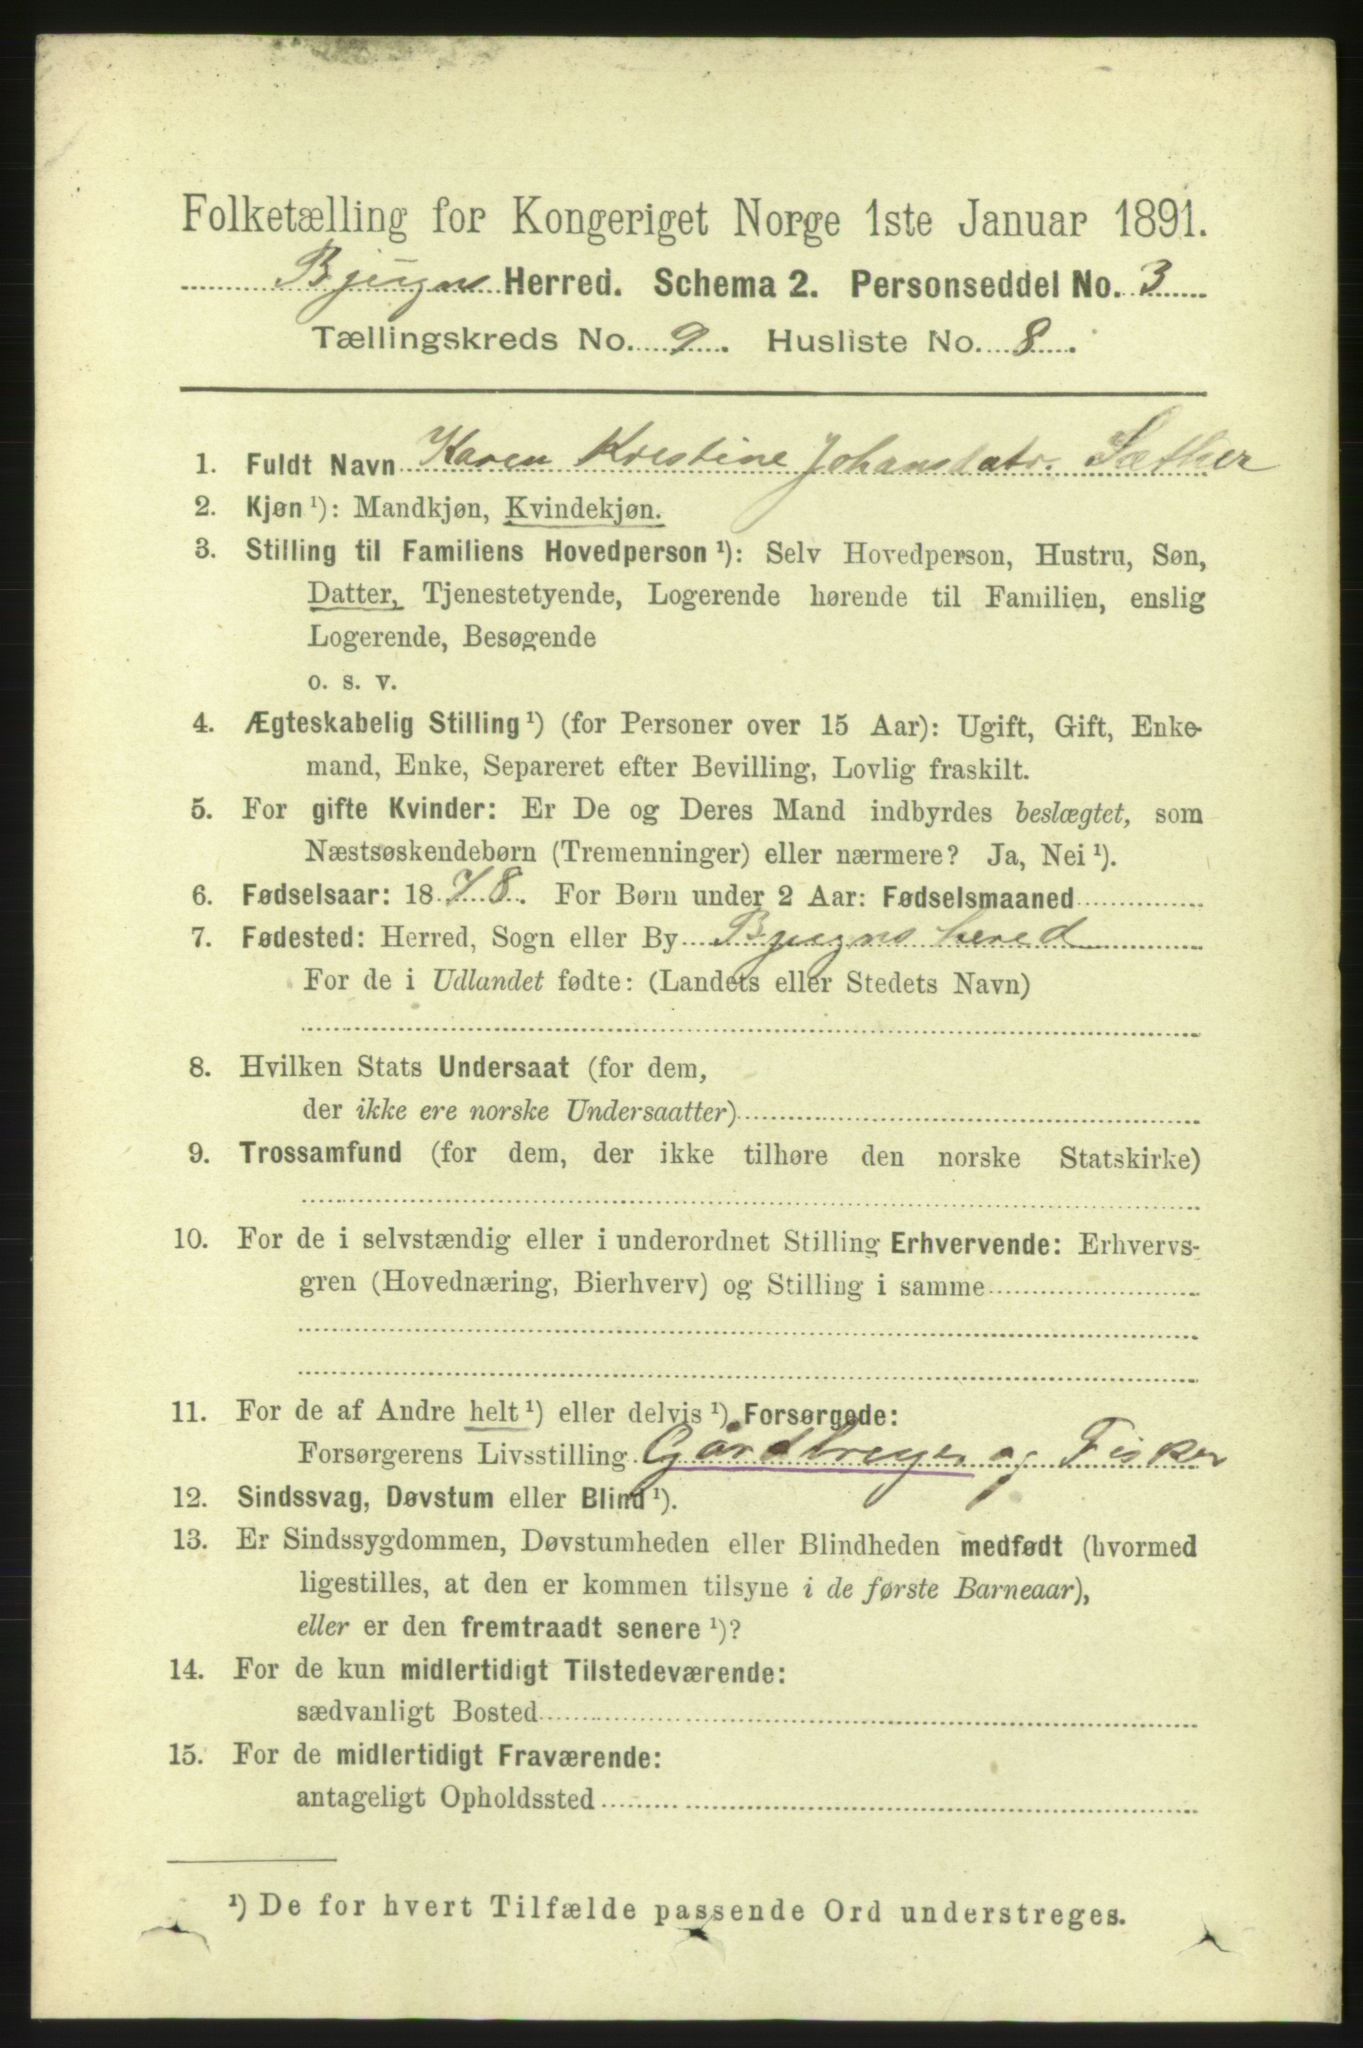 Folketælling for Kongeriget Norge 1ste Januar 1891.
Bjugns Herred. Schema 2. Personseddel No. 3
Tællingskreds No. 9. Husliste No. 8.
1. Fuldt Navn Karen Kristine Johansdatr. Sæther
2. Kjøn ¹): Mandkjøn, Kvindekjøn.
3. Stilling til Familiens Hovedperson ¹): Selv Hovedperson, Hustru, Søn,
Datter, Tjenestetyende, Logerende hørende til Familien, enslig
Logerende, Besøgende
o. s. v.
4. Ægteskabelig Stilling ¹) (for Personer over 15 Aar): Ugift, Gift, Enke-
mand, Enke, Separeret efter Bevilling, Lovlig fraskilt.
5. For gifte Kvinder: Er De og Deres Mand indbyrdes beslægtet, som
Næstsøskendebørn (Tremenninger) eller nærmere? Ja, Nei ¹).
6. Fødselsaar: 1878. For Børn under 2 Aar: Fødselsmaaned
7. Fødested: Herred, Sogn eller By Bjugns herred
For de i Udlandet fødte: (Landets eller Stedets Navn)
8. Hvilken Stats Undersaat (for dem,
der ikke ere norske Undersaatter)
9. Trossamfund (for dem, der ikke tilhøre den norske Statskirke)
10. For de i selvstændig eller i underordnet Stilling Erhvervende: Erhvervs-
gren (Hovednæring, Bierhverv) og Stilling i samme
11. For de af Andre helt ¹) eller delvis ¹) Forsørgede:
Forsørgerens Livsstilling Gårdbruger og Fisker
12. Sindssvag, Døvstum eller Blind ¹).
13. Er Sindssygdommen, Døvstumheden eller Blindheden medfødt (hvormed
ligestilles, at den er kommen tilsyne i de første Barneaar),
eller er den fremtraadt senere ¹)?
14. For de kun midlertidigt Tilstedeværende:
sædvanligt Bosted
15. For de midlertidigt Fraværende:
antageligt Opholdssted
¹) De for hvert Tilfælde passende Ord understreges.